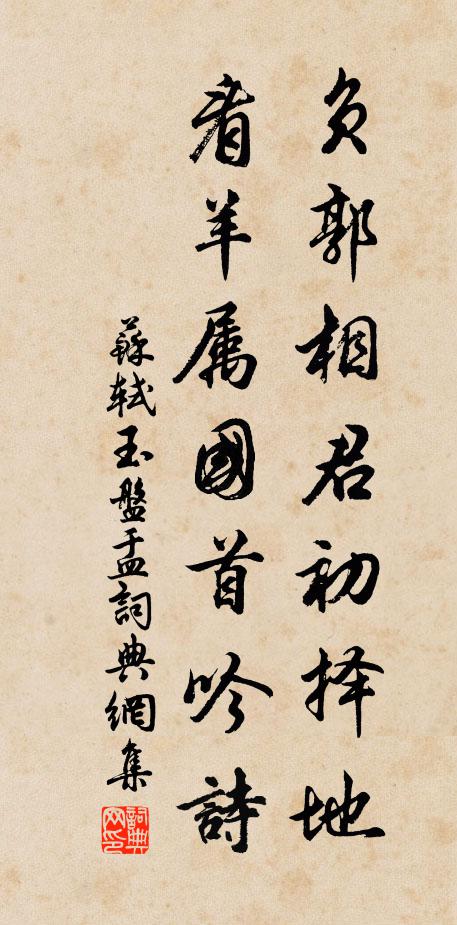 负郭相君初择地
看羊属國首吟詩
蘇轼玉盤盂詞典網集
詞典网印